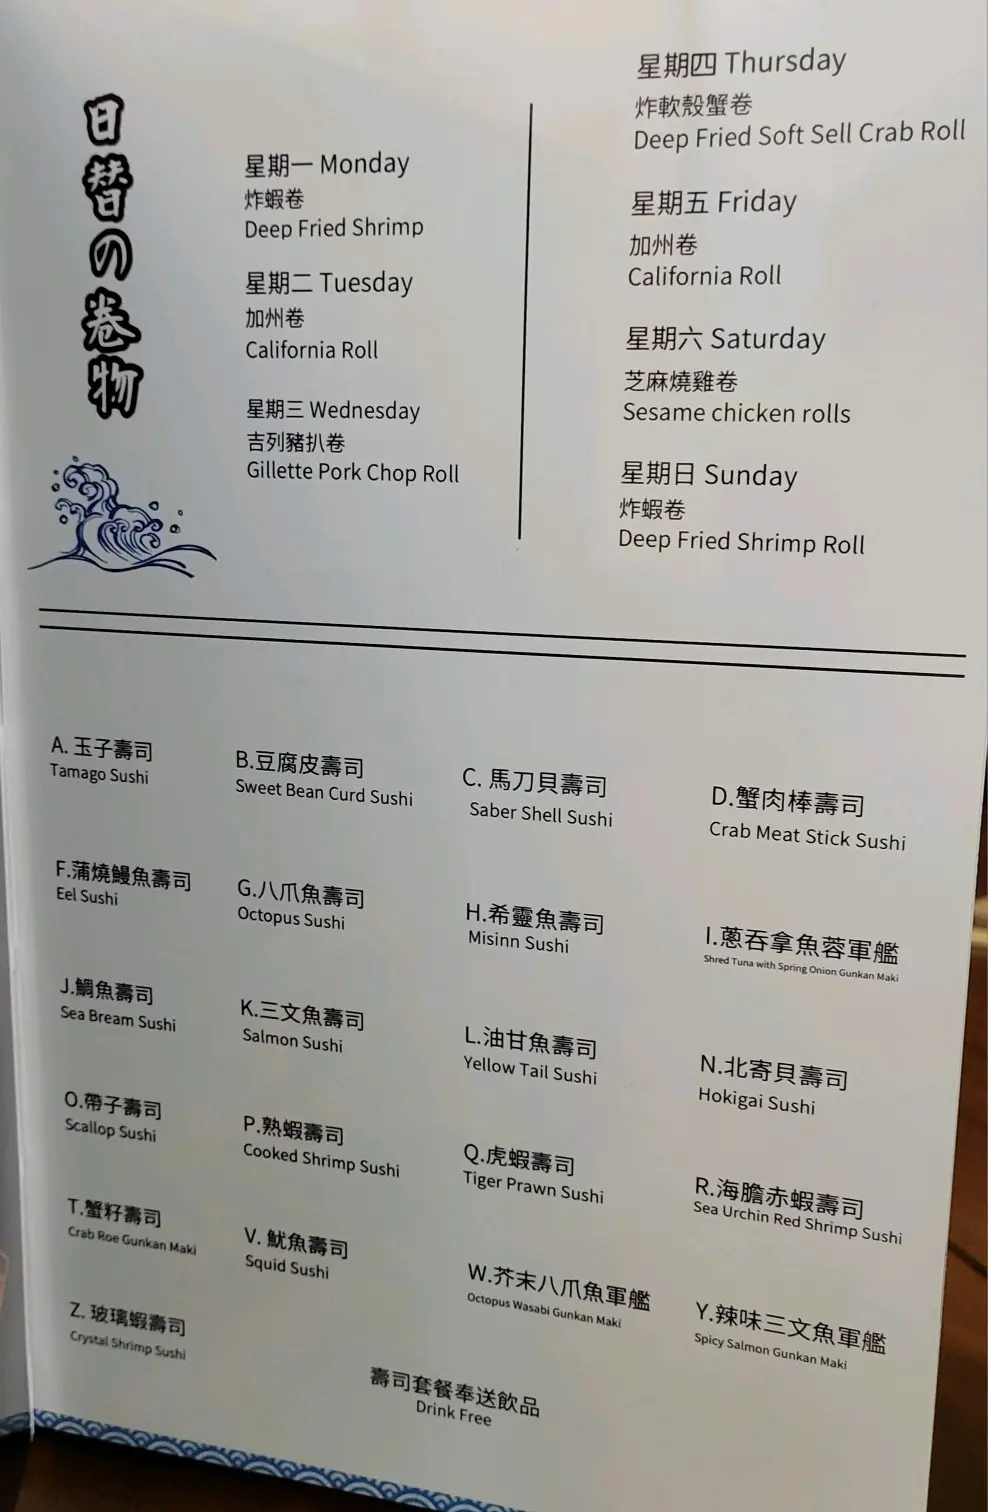 日替の巻物
星期一 Monday
炸蝦卷
Deep Fried Shrimp
星期二 Tuesday
加州卷
California Roll
星期三 Wednesday
吉列豬扒卷
Gillette Pork Chop Roll
星期四 Thursday
炸軟殼蟹卷
Deep Fried Soft Sell Crab Roll
星期五 Friday
加州卷
California Roll
星期六 Saturday
芝麻燒雞卷
Sesame chicken rolls
星期日 Sunday
炸蝦卷
Deep Fried Shrimp Roll
A. 玉子壽司
Tamago Sushi
B.豆腐皮壽司
Sweet Bean Curd Sushi
C. 馬刀貝壽司
Saber Shell Sushi
D.蟹肉棒壽司
Crab Meat Stick Sushi
F.蒲燒鰻魚壽司
Eel Sushi
G.八爪魚壽司
Octopus Sushi
H.希靈魚壽司
Misinn Sushi
I.蔥吞拿魚蓉軍艦
Shred Tuna with Spring Onion Gunkan Maki
J.鯛魚壽司
Sea Bream Sushi
K.三文魚壽司
Salmon Sushi
L.油甘魚壽司
Yellow Tail Sushi
N.北寄貝壽司
Hokigai Sushi
O.帶子壽司
Scallop Sushi
P.熟蝦壽司
Cooked Shrimp Sushi
Q.虎蝦壽司
Tiger Prawn Sushi
R.海膽赤蝦壽司
Sea Urchin Red Shrimp Sushi
T.蟹籽壽司
Crab Roe Gunkan Maki
V. 魷魚壽司
Squid Sushi
W.芥末八爪魚軍艦
Octopus Wasabi Gunkan Maki
Y.辣味三文魚軍艦
Spicy Salmon Gunkan Maki
Z. 玻璃蝦壽司
Crystal Shrimp Sushi
壽司套餐奉送飲品
Drink Free